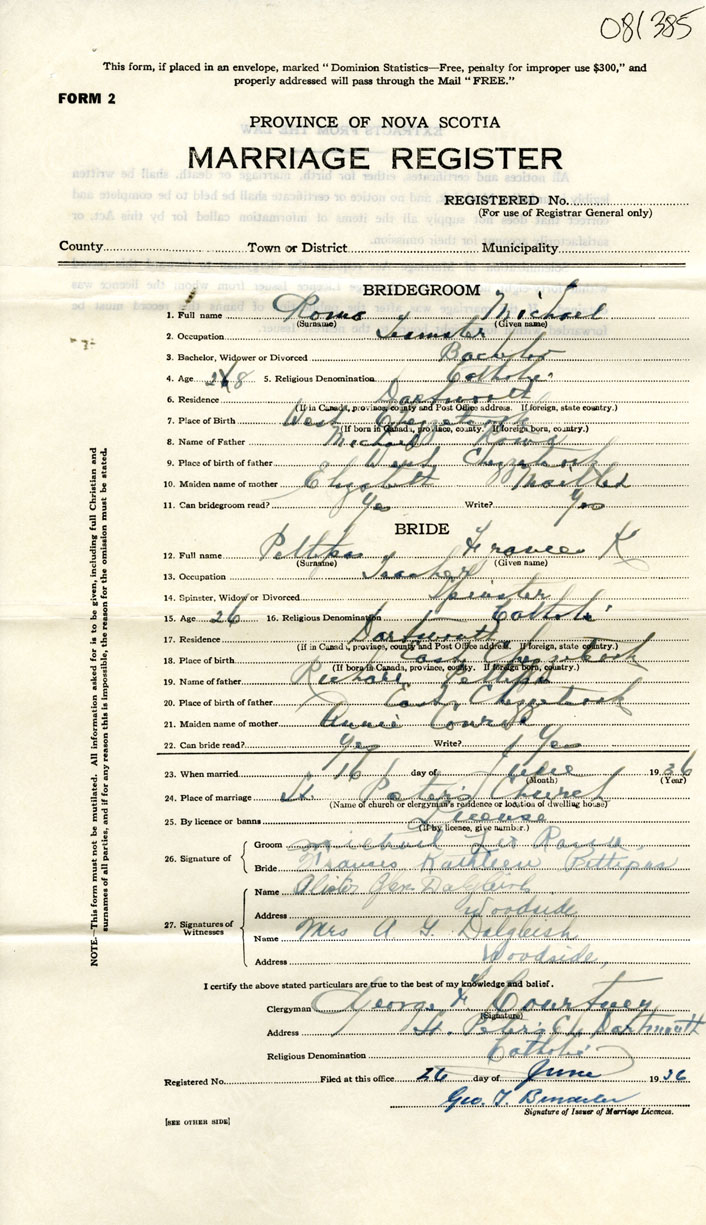 081385
This form, if placed in an envelope, marked "Dominion Statistics—Free, penalty for improper use $300," and
properly addressed will pass through the Mail "FREE."
FORM 2
PROVINCE OF NOVA SCOTIA
MARRIAGE REGISTER
REGISTERED No.
(For use of Registrar General only)
County Town or District Municipality
BRIDEGROOM
1. Full name Roma Michael
(Surname) (Given name)
2. Occupation Teamster
3. Bachelor, Widower or Divorced Bachelor
4. Age 28 5. Religious Denomination Catholic
6. Residence Dartmouth
(If in Canada, province, county and Post Office address. If foreign, state country.)
7. Place of Birth West Chezzetcook
(If born in Canada, province, county. If foreign born, country.)
8. Name of Father Michael Roma
9. Place of birth of father West Chezzetcook
10. Maiden name of mother Elizabeth
11. Can bridegroom read? Yes Write? Yes
BRIDE
12. Full name Pettipas Frances K
(Surname) (Given name)
13. Occupation Teacher
14. Spinster, Widow or Divorced Spinster
15. Age 26 16. Religious Denomination Catholic
17. Residence Dartmouth
(If in Canada, province, county and Post Office address. If foreign, state country.)
18. Place of birth East Chezzetcook
(If born in Canada, province, county. If foreign born, country.)
19. Name of father Richard Pettipas
20. Place of birth of father East Chezzetcook
21. Maiden name of mother Annie Conrod
22. Can bride read? Yes Write? Yes
23. When married 16 day of June 1936
(Month) (Year)
24. Place of marriage St Peter's Church
(Name of church or clergyman's residence or location of dwelling house)
25. By licence or banns License
(If by licence, give number.)
26. Signature of
Groom Michael Leo Roma
Bride Frances Kathleen Pettipas
27. Signatures of Witnesses
Name Alister Dalgleish
Address Woodside
Name Mrs A G Dalgleish
Address Woodside
I certify the above stated particulars are true to the best of my knowledge and belief.
Clergyman George F. Courtney
(Signature)
Address St. Peter's Ch Dartmouth
Religious Denomination Catholic
Registered No. Filed at this office 26 day of June 1936
Geo. T.
Signature of Issuer of Marriage Licences.
[SEE OTHER SIDE]
NOTE—This form must not be mutilated. All information asked for is to be given, including full Christian and
surnames of all parties, and if for any reason this is impossible, the reason for the omission must be stated.